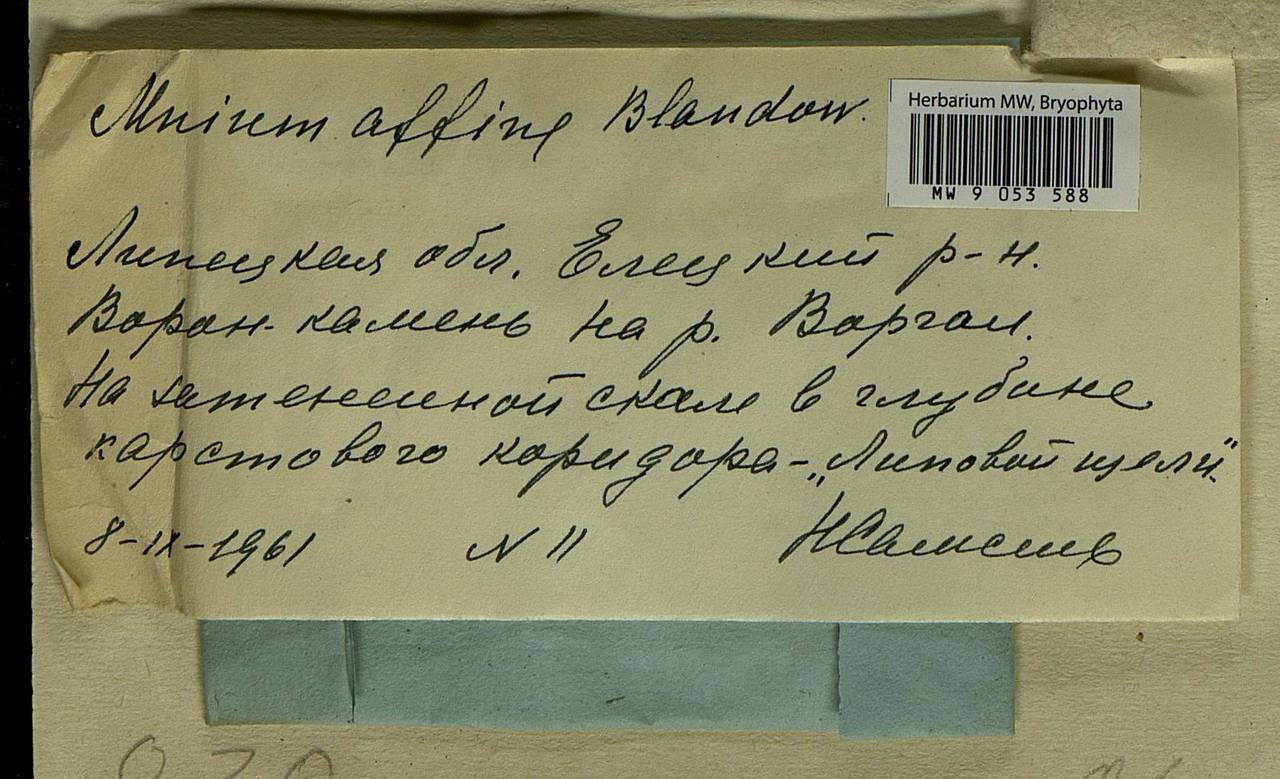 Mnium affine Blandow.
Herbarium MW, Bryophyta
MW 9 053 588
Липецкая обл. Елецкий р-н.
Воран-камень на р. Воргол.
На затененной скале в глубине
карстового коридора-„Липовой щели".
8-IX-1961 N 11